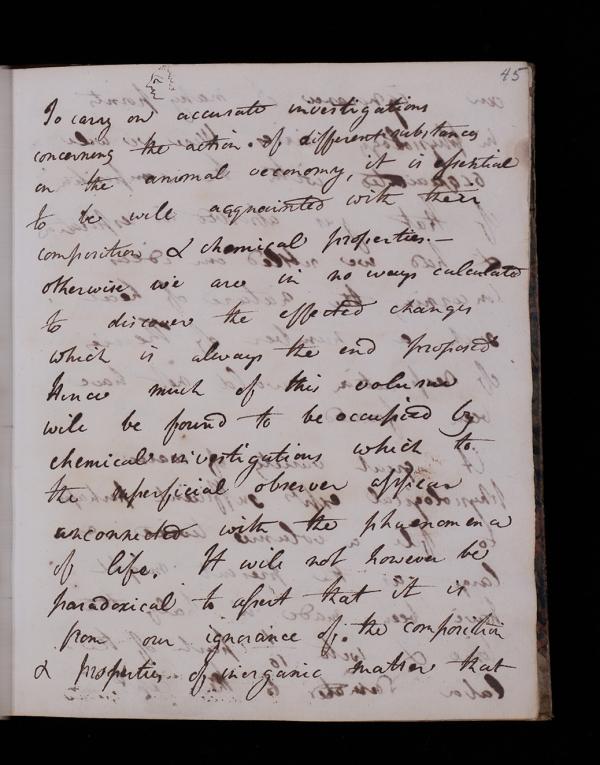 45
To carry on accurate investigations
concerning the action of different substances
on the animal oeconomy, it is essential
to be will acquainted with their
composition & chemical properties. —
otherwise we are in no ways calculated
to discover the effected changes
which is always the end proposed
Hence much of this volume
will be found to be occupied by
chemical investigations which to
the superficial observer appear
unconnected with the phaenomena
of life. It will not however be
paradoxical to assert that it is
from our ignorance of the composition
& properties of inorganic matter that